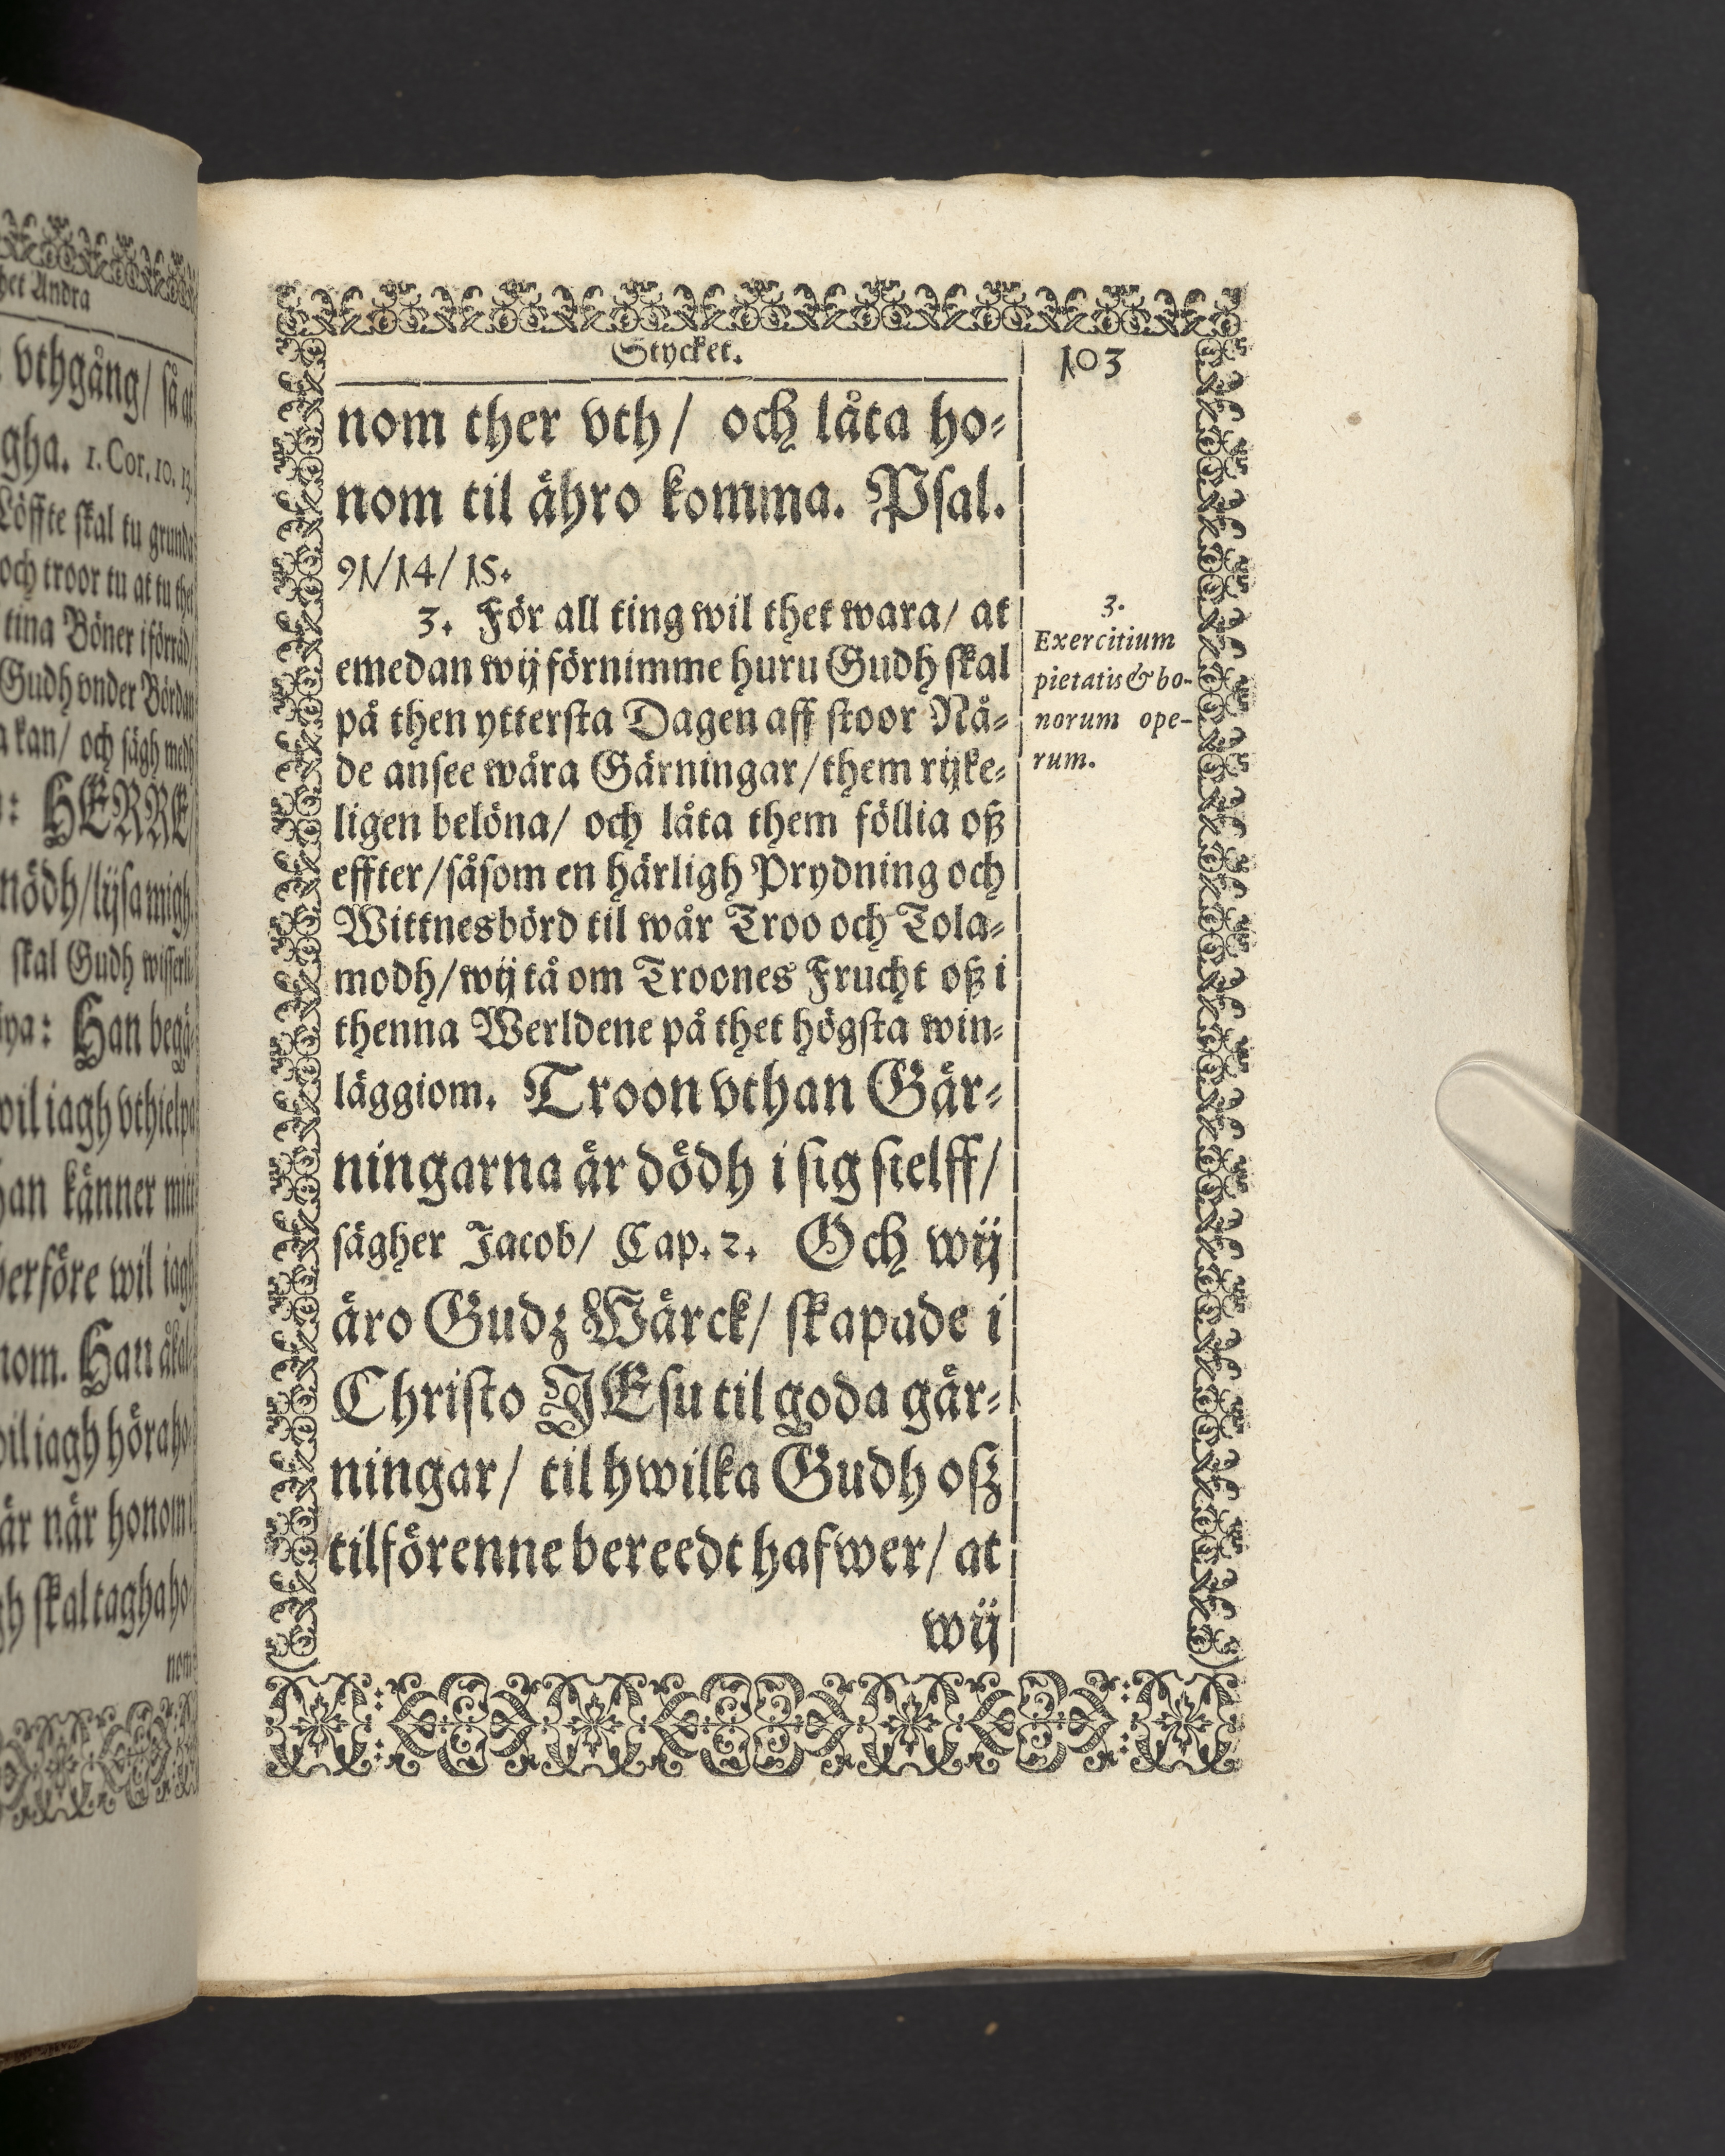 het Andra
vthgång/ så at
gha. 1. Cor. 10. 13.
Löffte skal tu grunda
och troor tu at tu thet
tina Böner i förråd/
Gudh vnder Bördan
kan/ och sägh medh
: HERRE
nödh/ lijsa migh.
skal Gudh wisserli-
Han begä-
wil iagh vthielpa
han känner mitt
herföre wil iagh
nom. Han åkal-
wil iagh höra ho-
är när honom i
gh skal tagha ho-
nom
Stycket. 103
nom ther vth/ och låta ho-
nom til ähro komma. Psal.
91/14/15.
3. För all ting wil thet wara/ at
emedan wij förnimme huru Gudh skal
på then yttersta Dagen aff stoor Nå-
de ansee wåra Gärningar/ them rijke-
ligen belöna/ och låta them föllia oß
effter/ såsom en härligh Prydning och
Wittnesbörd til wår Troo och Tola-
modh/ wij tå om Troones Frucht oß i
thenna Werldene på thet högsta win-
läggiom. Troon vthan Gär-
ningarna är dödh i sig sielff/
sägher Jacob/ Cap. 2. Och wij
äro Gudz Wärck/ skapade i
Christo JEsu til goda gär-
ningar/ til hwilka Gudh oß
tilförenne bereedt hafwer/ at
wij
3.
Exercitium
pietatis & bo-
norum ope-
rum.